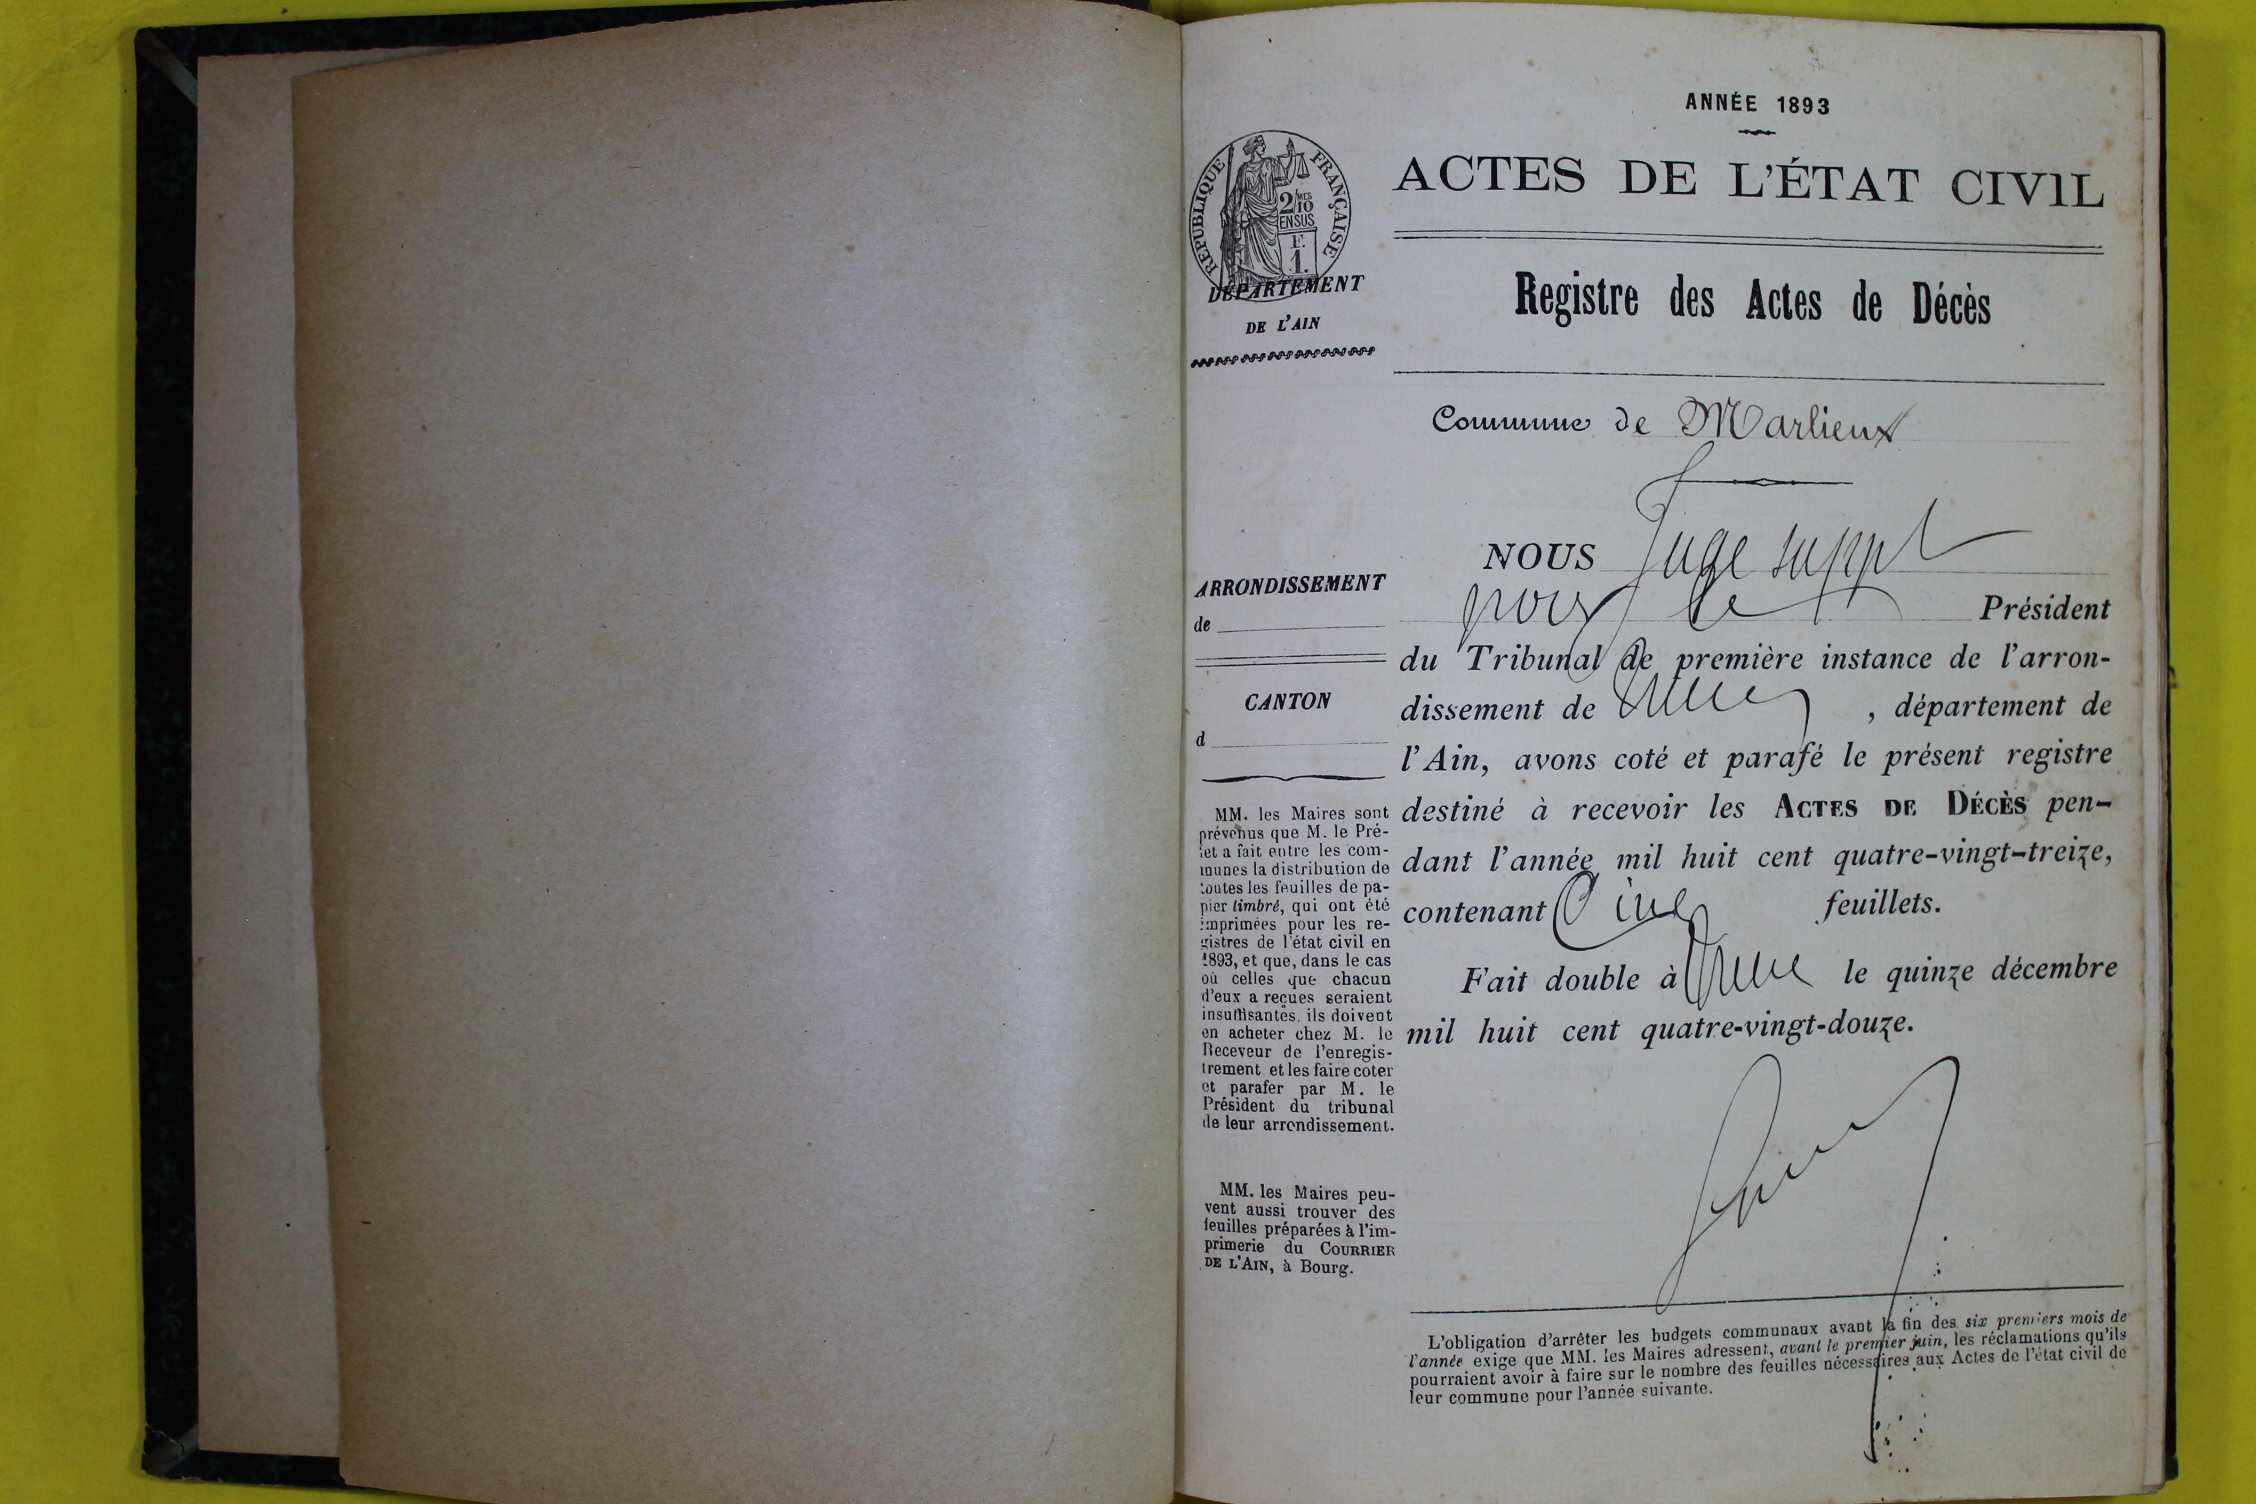 ANNÉE 1893
ACTES DE L'ÉTAT CIVIL
Registre des Actes de Décès
RÉPUBLIQUE FRANÇAISE
2/10MES
EN SUS
F.
1.
DÉPARTEMENT
DE L'AIN
Commune de Marlieux
NOUS Juge suppt
pour le Président
du Tribunal de première instance de l'arron-
dissement de Trévoux, département de
l'Ain, avons coté et parafé le présent registre
destiné à recevoir les ACTES DE DÉCÈS pen-
dant l'année mil huit cent quatre-vingt-treize,
contenant Cinq feuillets.
Fait double à Trévoux le quinze décembre
mil huit cent quatre-vingt-douze.
ARRONDISSEMENT
de
CANTON
d
MM. les Maires sont
prévenus que M. le Pré-
fet a fait entre les com-
munes la distribution de
toutes les feuilles de pa-
pier timbré, qui ont été
imprimées pour les re-
gistres de l'état civil en
1893, et que, dans le cas
où celles que chacun
d'eux a reçues seraient
insuffisantes, ils doivent
en acheter chez M. le
Receveur de l'enregis-
trement et les faire coter
et parafer par M. le
Président du tribunal
de leur arrondissement.
MM. les Maires peu-
vent aussi trouver des
feuilles préparées à l'im-
primerie du COURRIER
DE L'AIN, à Bourg.
L'obligation d'arrêter les budgets communaux avant la fin des six premiers mois de
l'année exige que MM. les Maires adressent, avant le premier juin, les réclamations qu'ils
pourraient avoir à faire sur le nombre des feuilles nécessaires aux Actes de l'état civil de
leur commune pour l'année suivante.